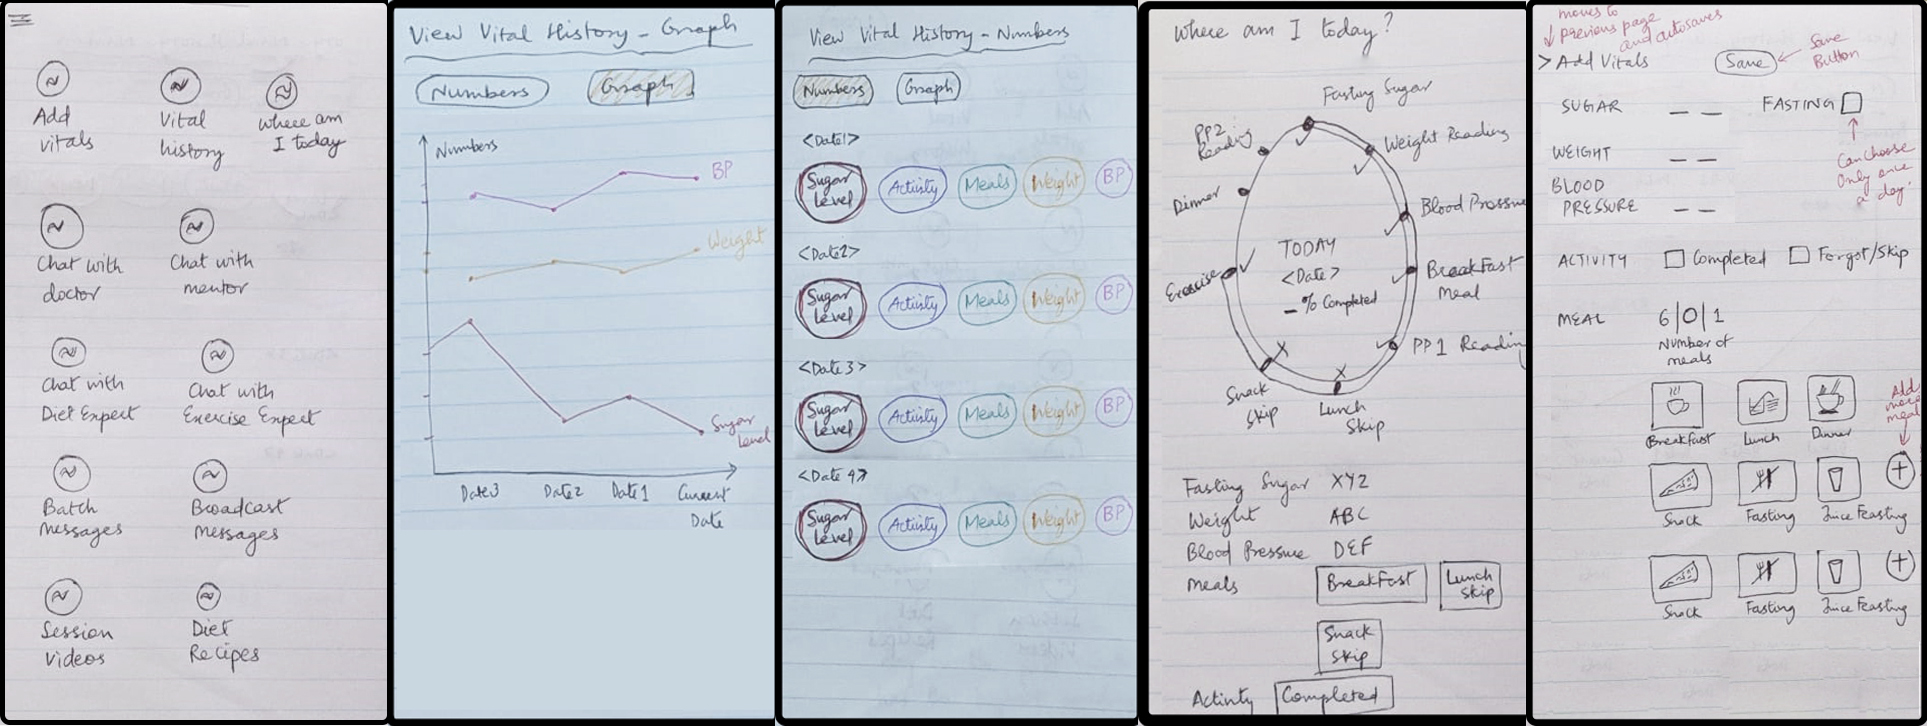 Add
vitals
Vital
history
Where am
I today
Chat with
doctor
Chat with
mentor
Chat with
Diet Expect
Chat with
Exercise Expect
Batch
Messages
Broadcast
Messages
Session
Videos
Diet
Recipes
View Vital History - Graph
Numbers
Graph
Numbers
BP
Weight
Sugar
Level
Date3
Date2
Date1
Current
Date
View Vital History - Numbers
Numbers
Graph
<Date1>
Sugar
Level
Activity
Meals
Weight
BP
<Date2>
Sugar
Level
Activity
Meals
Weight
BP
<Date3>
Sugar
Level
Activity
Meals
Weight
BP
<Date4>
Sugar
Level
Activity
Meals
Weight
BP
Where am I today?
Fasting Sugar
Weight Reading
Blood Pressure
Breakfast
Meal
PP1 Reading
Lunch
Skip
Snack
Skip
Exercise
Dinner
PP2
Reading
TODAY
<Date>
_ % Completed
Fasting Sugar XYZ
Weight ABC
Blood Pressure DEF
Meals
Breakfast
Lunch
Skip
Snack
Skip
Activity
Completed
moves to
previous page
and autosaves
> Add Vitals
Save
Save
Button
SUGAR _ _
FASTING
Can choose
Only once
a day.
WEIGHT _ _
BLOOD
PRESSURE _ _
ACTIVITY
Completed
Forgot/Skip
MEAL
6|0|1
Number of
meals
Breakfast
Lunch
Dinner
Add
more
meal
Snack
Fasting
Juice Feasting
Snack
Fasting
Juice Feasting